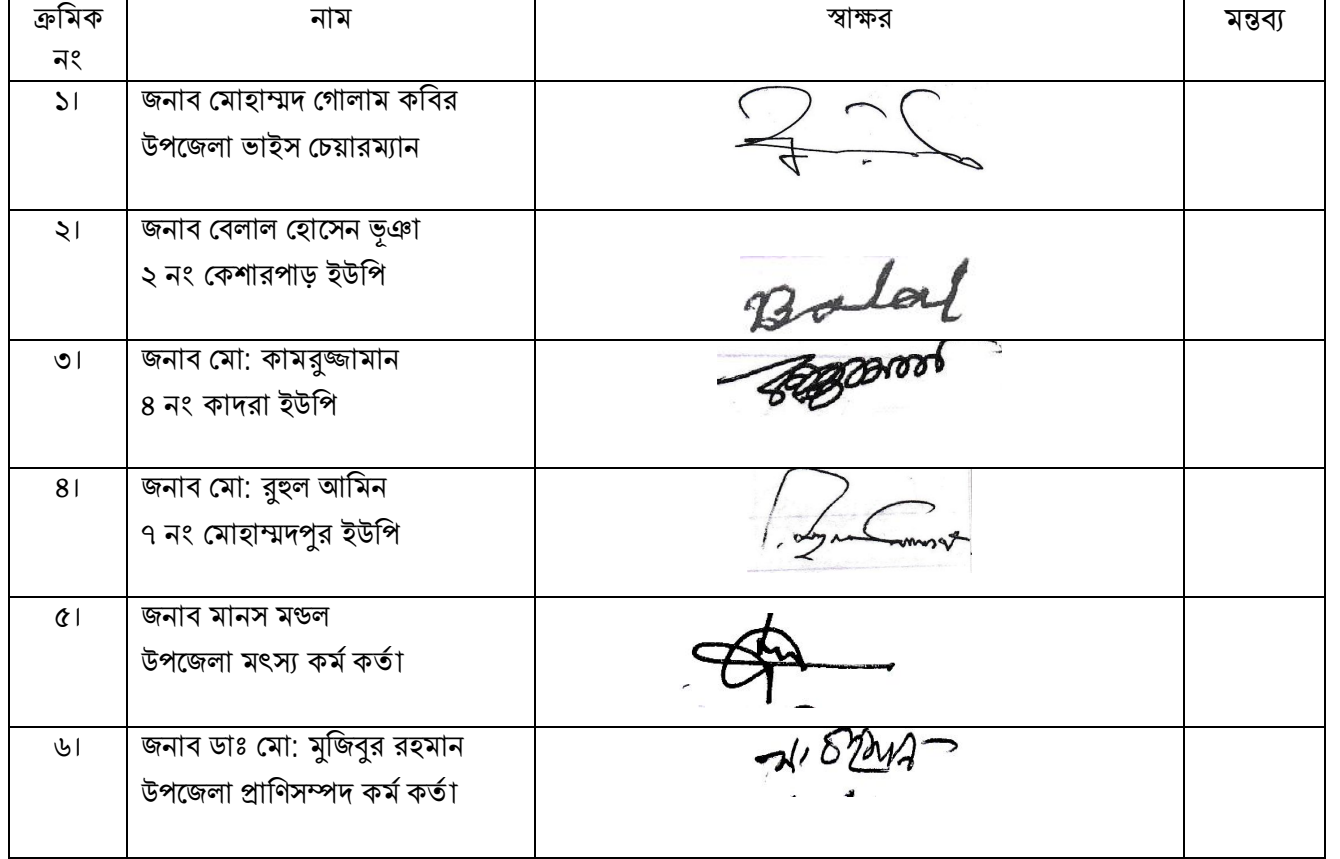 ক্রমিক নং নাম স্বাক্ষর মন্তব্য
১। জনাব মোহাম্মদ গোলাম কবির
উপজেলা ভাইস চেয়ারম্যান
২। জনাব বেলাল হোসেন ভূঞা
২ নং কেশারপাড় ইউপি
Balal
৩। জনাব মো: কামরুজ্জামান
৪ নং কাদরা ইউপি
৪। জনাব মো: রুহুল আমিন
৭ নং মোহাম্মদপুর ইউপি
৫। জনাব মানস মন্ডল
উপজেলা মৎস্য কর্ম কর্তা
৬। জনাব ডাঃ মো: মুজিবুর রহমান
উপজেলা প্রাণিসম্পদ কর্ম কর্তা